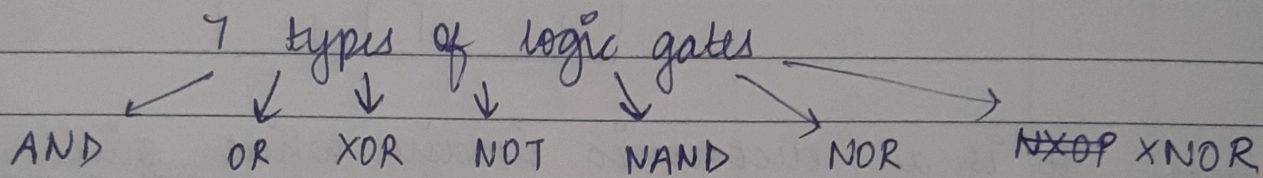 7 types of logic gates
AND OR XOR NOT NAND NOR XNOR